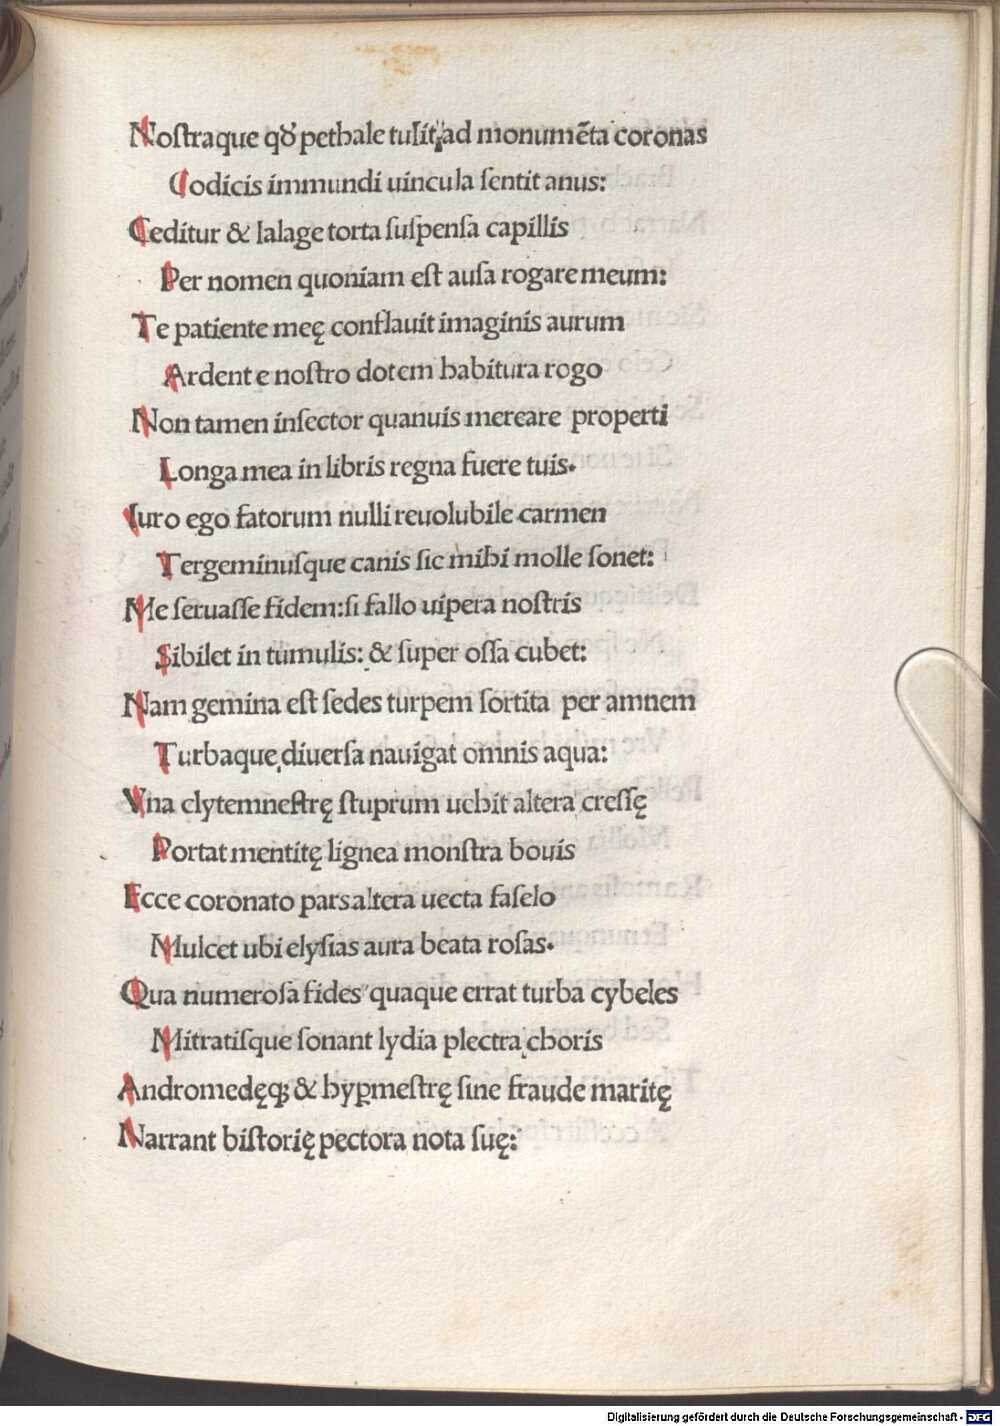 Noſtraque qđ pethale tulit ad monumēta coronas
Codicis immundi uincula ſentit anus:
Ceditur & lalage torta ſuſpenſa capillis
Per nomen quoniam eſt auſa rogare meum:
Te patiente meę conflauit imaginis aurum
Ardent e noſtro dotem habitura rogo
Non tamen inſector quanuis mereare properti
Longa mea in libris regna fuere tuis.
Iuro ego fatorum nulli reuolubile carmen
Tergeminuſque canis ſic mihi molle ſonet:
Me ſeruaſſe fidem: ſi fallo uipera noſtris
Sibilet in tumulis: & ſuper oſſa cubet:
Nam gemina eſt ſedes turpem ſortita per amnem
Turbaque diuerſa nauigat omnis aqua:
Vna clytemneſtrę ſtuprum uehit altera creſſę
Portat mentitę lignea monſtra bouis
Ecce coronato pars altera uecta faſelo
Mulcet ubi elyſias aura beata roſas.
Qua numeroſa fides quaque errat turba cybeles
Mitratiſque ſonant lydia plectra choris
Andromedęqꝫ & hyꝑmeſtrę ſine fraude maritę
Narrant hiſtorię pectora nota ſuę:
Digitalisierung gefördert durch die Deutsche Forschungsgemeinschaft - DFG